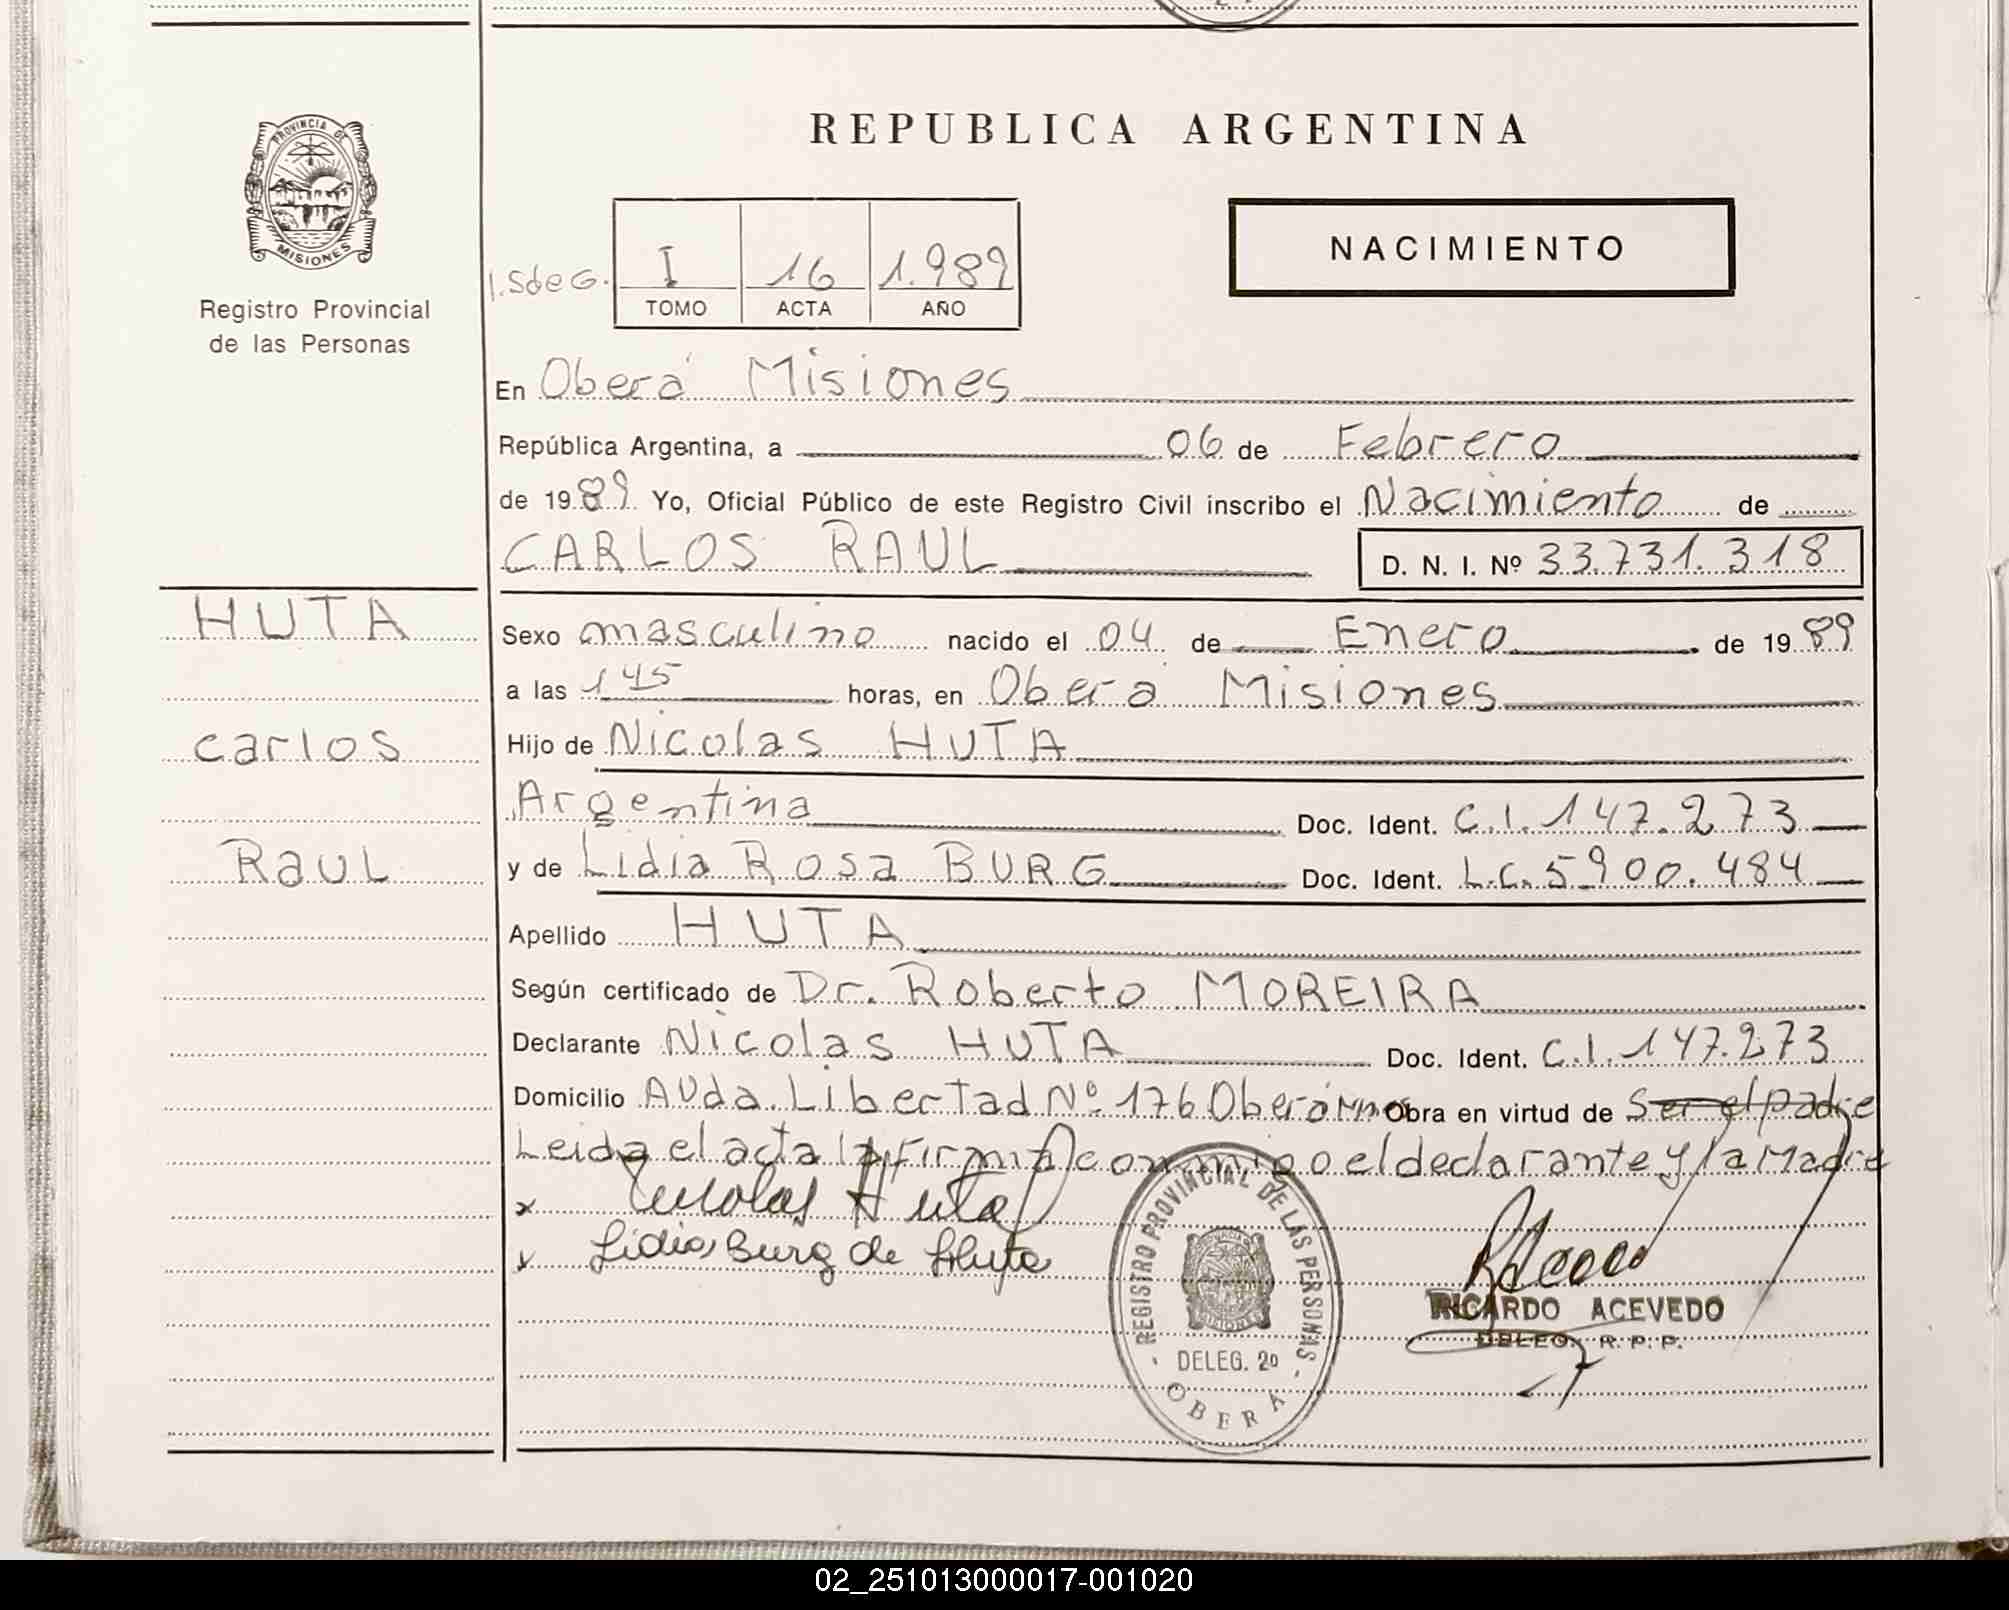 PROVINCIA DE
MISIONES
Registro Provincial
de las Personas
HUTA
Carlos
RAUL
REPUBLICA ARGENTINA
I.SdeG. I 16 1.989
TOMO ACTA AÑO
NACIMIENTO
En Oberá Misiones
República Argentina, a 06 de Febrero
de 1989 Yo, Oficial Público de este Registro Civil inscribo el Nacimiento de
CARLOS RAUL D. N. I. Nº 33.731.318
Sexo masculino nacido el 04 de Enero de 1989
a las 145 horas, en Oberá Misiones
Hijo de Nicolas HUTA
Argentina Doc. Ident. C.I. 147.273
y de Lidia Rosa BURG Doc. Ident. L.C. 5900.484
Apellido HUTA
Según certificado de Dr. Roberto MOREIRA
Declarante Nicolas HUTA Doc. Ident. C.I. 147.273
Domicilio AVda. Libertad Nº 176 Oberá Mnes Obra en virtud de Ser el padre
Leida el acta la firma conmigo el declarante y la Madre
x Nicolas Huta
x Lidia Burg de Huta
REGISTRO PROVINCIAL DE LAS PERSONAS
MISIONES
DELEG. 2º
OBERA
RICARDO ACEVEDO
DELEG. R. P. P.
02_251013000017-001020